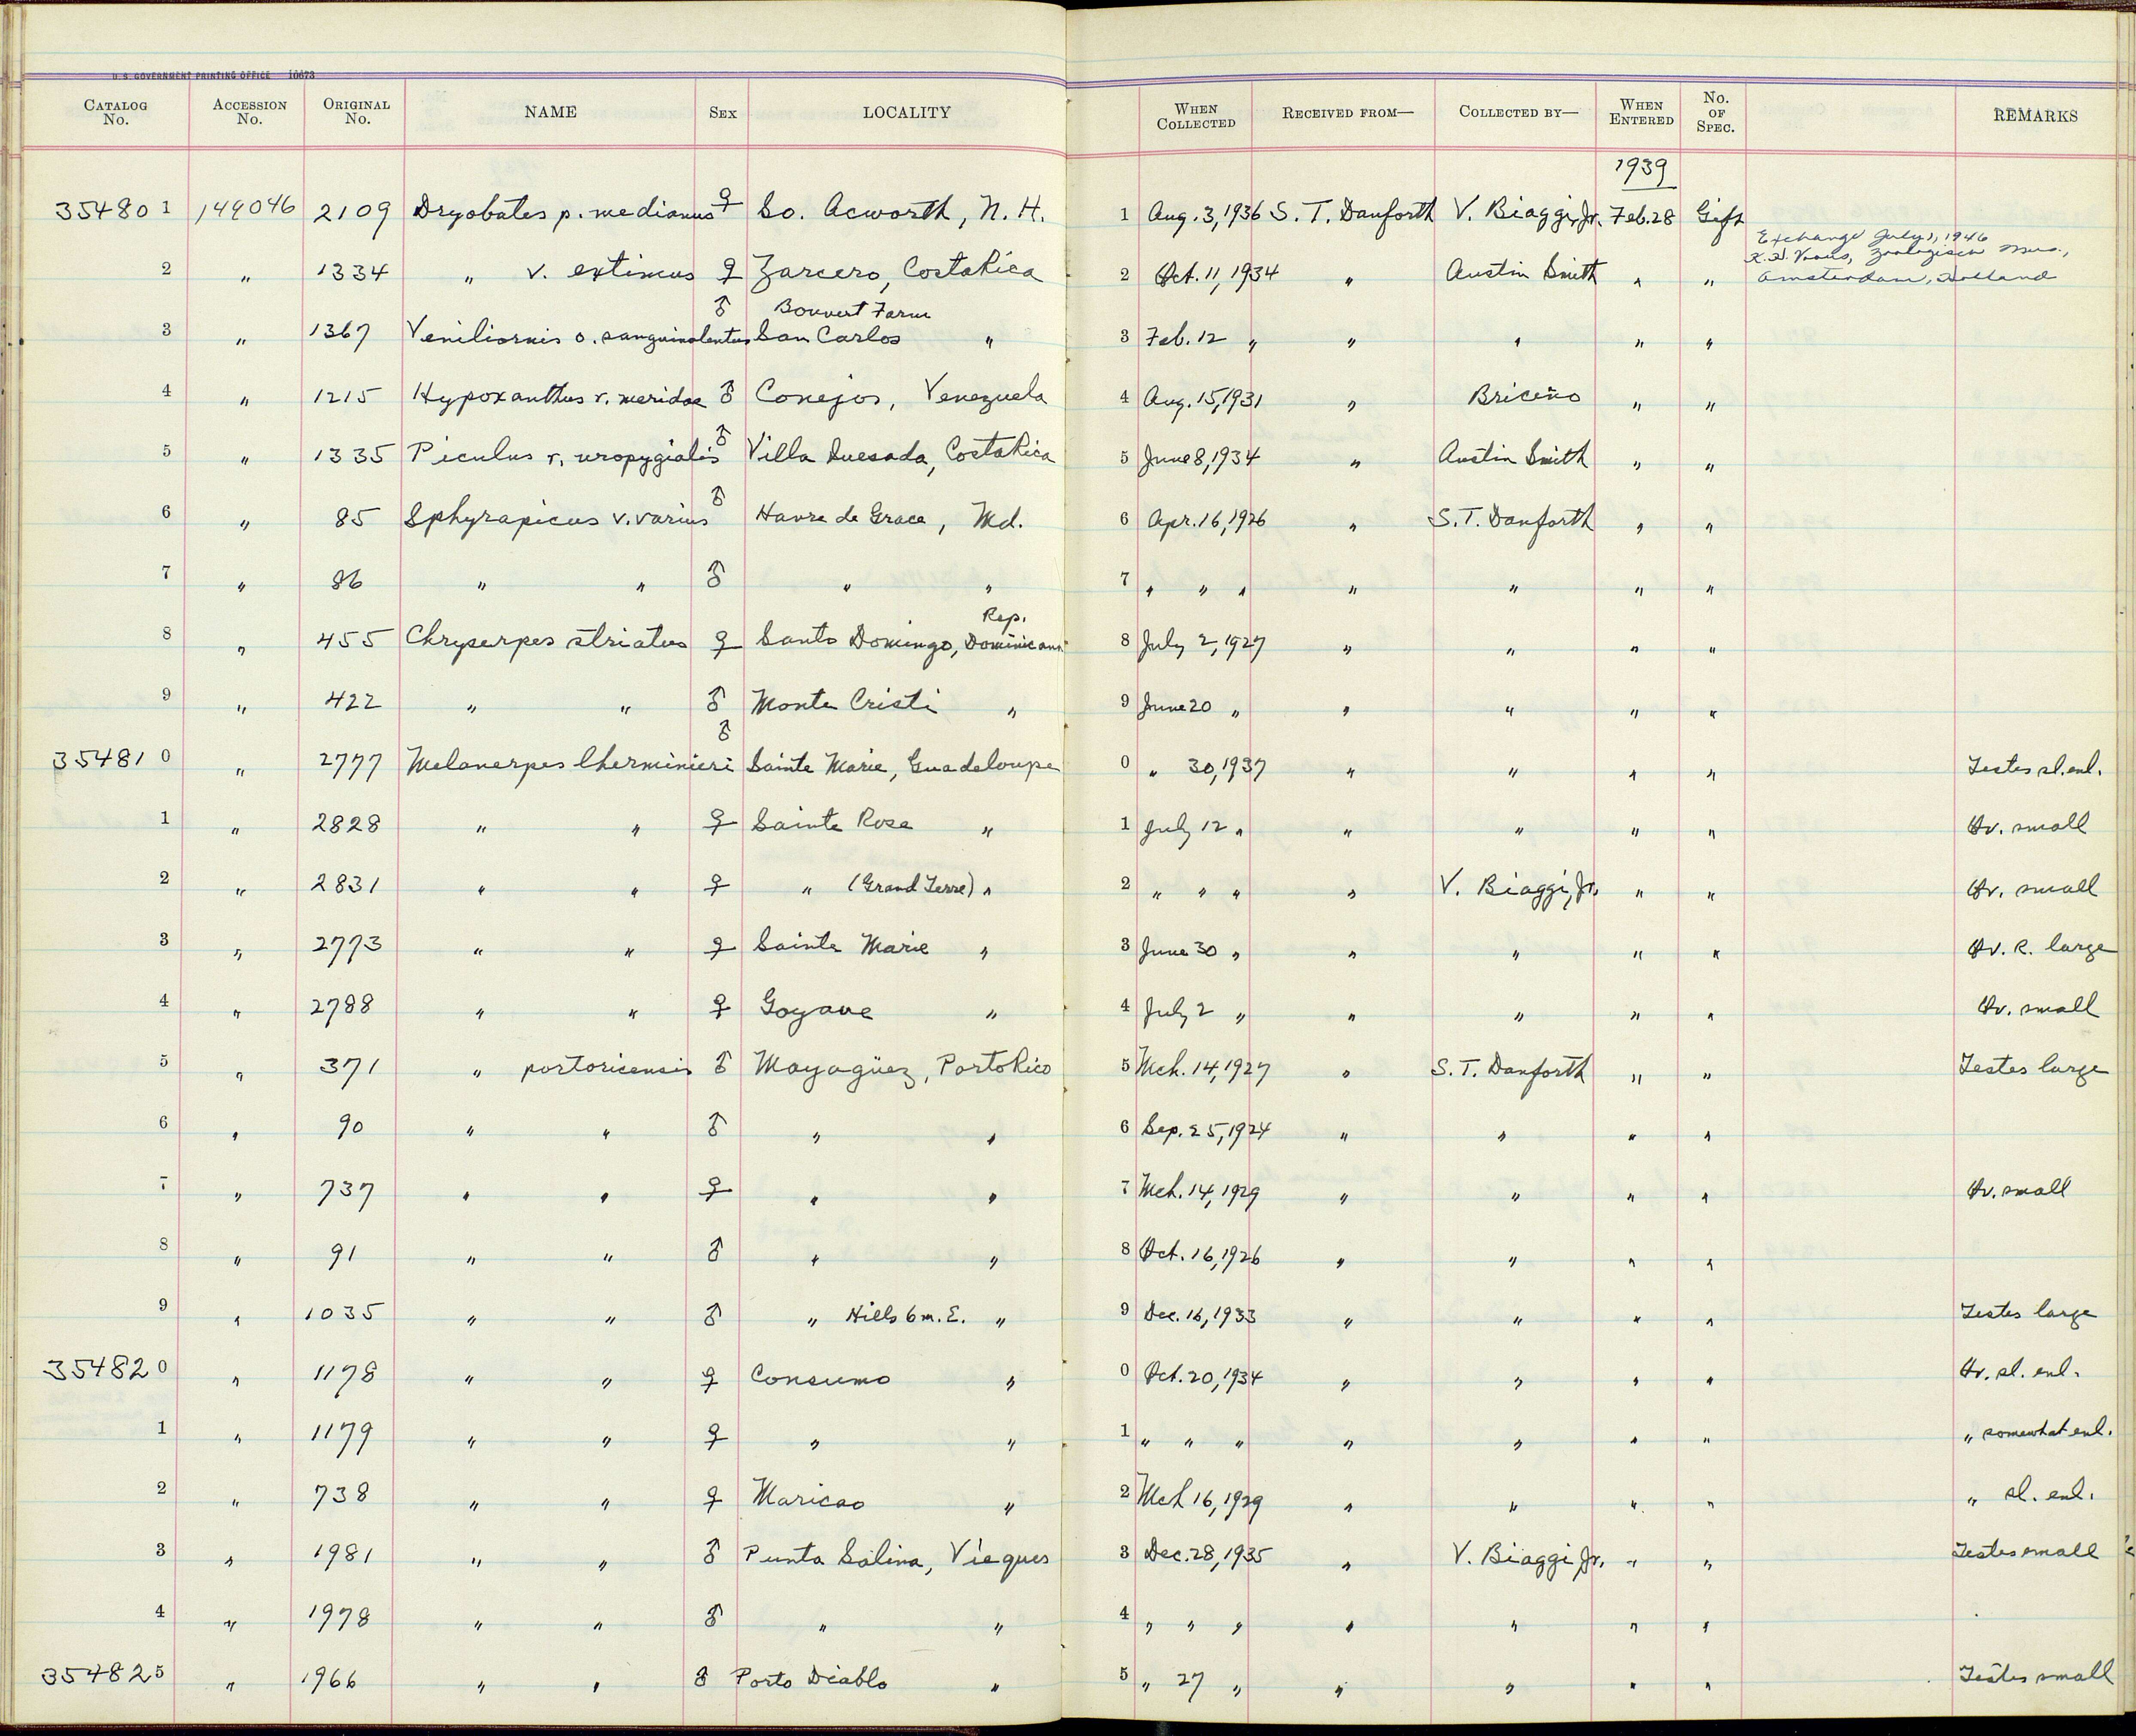 U.S. GOVERNMENT PRINTING OFFICE 10673
CATALOG No. ACCESSION No. ORIGINAL No. NAME SEX LOCALITY WHEN COLLECTED RECEIVED FROM— COLLECTED BY— WHEN ENTERED No. OF SPEC. REMARKS
1939
354801 149046 2109 Dryobates p. medianus ♀ So. Acworth, N. H. 1 Aug. 3, 1936 S. T. Danforth V. Biaggi, Jr. Feb. 28 Gift
Exchange July 1, 1946
Zoologisch Mus.,
Amsterdam, Holland
2 " 1334 " v. extimus ♀ Zarcero, Costa Rica 2 Oct. 11, 1934 " Austin Smith " "
Bouvert Farm
3 " 1367 Veniliornis o. sanguinolentus ♂ San Carlos " 3 Feb. 12 " " " " "
4 " 1215 Hypoxanthus r. meridae ♂ Conejos, Venezuela 4 Aug. 15, 1931 " Briceño " "
5 " 1335 Piculus r. uropygialis ♂ Villa Quesada, Costa Rica 5 June 8, 1934 " Austin Smith " "
6 " 85 Sphyrapicus v. varius ♂ Havre de Grace, Md. 6 Apr. 16, 1926 " S. T. Danforth " "
7 " 86 " " ♂ " " 7 " " " " " " "
Rep.
8 " 455 Chryserpes striatus ♀ Santo Domingo, Dominican 8 July 2, 1927 " " " "
9 " 422 " " ♂ Monte Cristi " 9 June 20 " " " " "
354810 " 2777 Melanerpes lherminieri ♂ Sainte Marie, Guadeloupe 0 " 30, 1937 " " " " Testes sl. enl.
1 " 2828 " " ♀ Sainte Rose " 1 July 12 " " " " " Ov. small
2 " 2831 " " ♀ " (Grand Terre) " 2 " " " " V. Biaggi, Jr. " " Ov. small
3 " 2773 " " ♀ Sainte Marie " 3 June 30 " " " " " Ov. R. large
4 " 2788 " " ♀ Goyave " 4 July 2 " " " " " Ov. small
5 " 371 " portoricensis ♂ Mayagüez, Porto Rico 5 Mch. 14, 1927 " S. T. Danforth " " Testes large
6 " 90 " " ♂ " " 6 Sep. 25, 1924 " " " "
7 " 737 " " ♀ " " 7 Mch. 14, 1929 " " " " Ov. small
8 " 91 " " ♂ " " 8 Oct. 16, 1926 " " " "
9 " 1035 " " ♂ " Hills 6 m. E. " 9 Dec. 16, 1933 " " " " Testes large
354820 " 1178 " " ♀ Consumo " 0 Oct. 20, 1934 " " " " Ov. sl. enl.
1 " 1179 " " ♀ " " 1 " " " " " " " " somewhat enl.
2 " 738 " " ♀ Maricao " 2 Mch 16, 1929 " " " " " sl. enl.
3 " 1981 " " ♂ Punta Salina, Vieques 3 Dec. 28, 1935 " V. Biaggi Jr. " " Testes small
4 " 1978 " " ♂ " " 4 " " " " " " "
354825 " 1966 " " ♂ Porto Diablo " 5 " 27 " " " " " Testes small